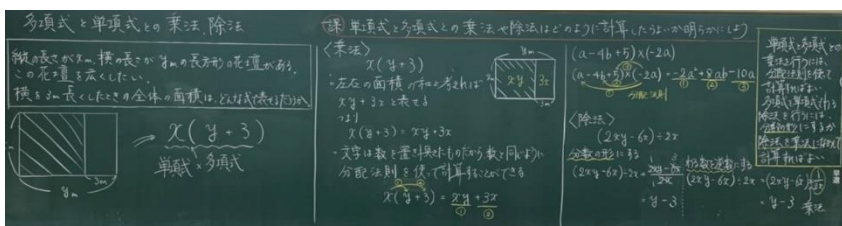 多項式と単項式との乗法、除法
縦の長さがxm、横の長さがymの長方形の花壇がある。
この花壇を広くしたい。
横を3m長くしたときの全体の面積は、どんな式で表せるだろうか
ym
3m
x(y+3)
単項式×多項式
課 単項式と多項式との乗法や除法はどのように計算したらよいか明らかにしよう
〈乗法〉
x(y+3)
・左右の面積の和と考えれば
xy+3xと表せる
つまり
x(y+3)=xy+3x
・文字は数を置き換えたものだから数と同じように
分配法則を使って計算することができる
x(y+3)=xy+3x
① ②
ym
xy 3x
3m
(a-4b+5)×(-2a)
(a-4b+5)×(-2a)=-2a²+8ab-10a
① ② ③
分配法則
〈除法〉
(2xy-6x)÷2x
分数の形にする
(2xy-6x)÷2x=2xy-6x/2x
=y-3
わる数を逆数にする
(2xy-6x)÷2x=(2xy-6x)×1/2x
=y-3
乗法
単項式と多項式との
乗法を行うには、
分配法則を使って
計算すればよい
多項式を単項式でわる
除法を行うには、
分数の形にするか
除法を乗法になおして
計算すればよい